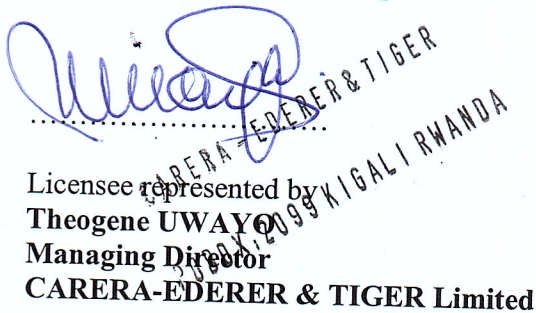 CARERA-EDERER & TIGER
P.O BOX: 2099 KIGALI RWANDA
Licensee represented by
Theogene UWAYO
Managing Director
CARERA-EDERER & TIGER Limited